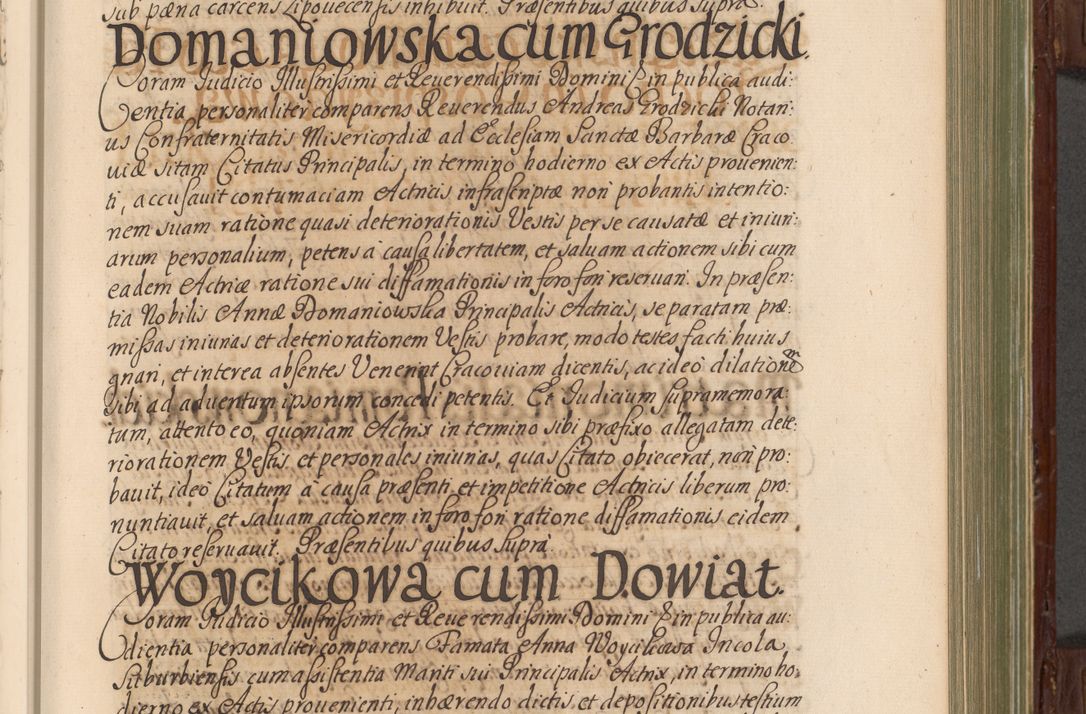 sub pæna carcens Lipovecensis inhibuit. Præsentibus quibus supra
Domaniowska cum Grodzicki.
Coram Iudicio Illustrissimi et Reuerendissimi Domini & in publica audi:
entia personaliter comparens Reuerendus Andreas Grodzicki Notari:
us Confraternitatis Misericordiæ ad Ecclesiam Sanctæ Barbaræ Craco:
uiæ sitam Citatus Principalis, in termino hodierno ex Actis prouenien:
ti, accusauit contumaciam Actricis infrascriptæ non probantis intentio:
nem suam ratione quasi deteriorationis Vestis per se causatæ et iniuri:
arum personalium, petens à causa libertatem, et saluam actionem sibi cum
eadem Actrice ratione sui diffamationis in foro fori reseruari. In præsen:
tia Nobilis Annæ Domaniowska Principalis Actricis, se paratam præ:
missas iniurias et deteriorationem Vestis probare, modo testes facti huius
gnari, et interea absentes Venerint Cracouiam dicentis, ac ideò dilationem
sibi ad aduentum ipsorum concedi petentis. Et Iudicium supramemora:
tum, attento eo, quoniam Actrix in termino sibi præfixo allegatam dete:
riorationem Vestis et personales iniurias, quas Citato obiecerat, non pro:
bauit, ideò Citatum à causa præsenti et impetitione Actricis liberum pro:
nuntiauit, et saluam actionem in foro fori ratione diffamationis eidem
Citato reseruauit. Præsentibus quibus supra.
Woycikowa cum Dowiat.
Coram Iudicio Illustrissimi et Reuerendissimi Domini & in publica au:
dientia personaliter comparens Famata Anna Woycikowa Incola
Suburbiensis cum assistentia Mariti sui Principalis Actrix, in termino ho:
dierno ex Actis prouenienti, inhærendo dictis, et depositionibus testium